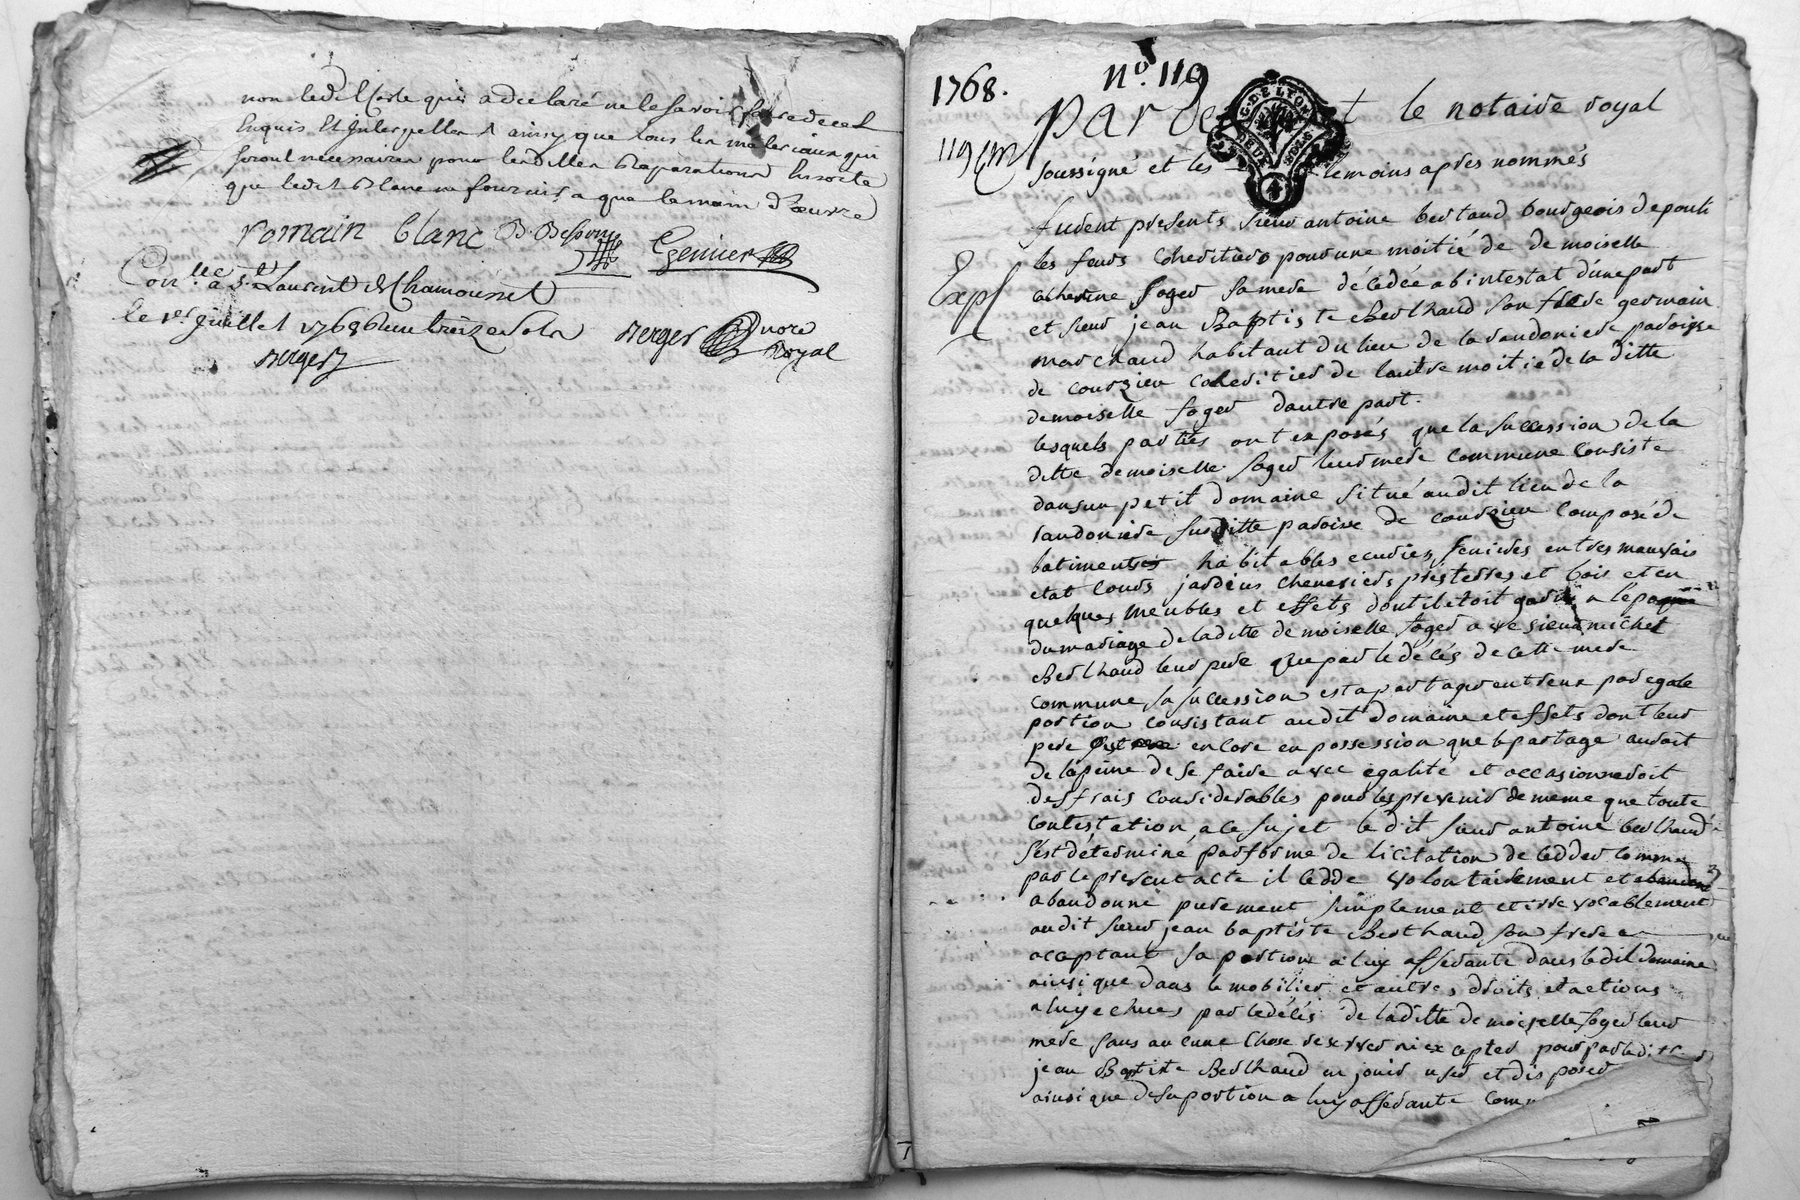 non ledit Coste qui a declaré ne le savoir faire de ce
Enquis Et Interpellés ainsy que tous les materiaux qui
seront necessaires pour lesdittes Reparations Ensorte
que ledit Blanc ne fournira que la main d'œuvre
romain blanc
Genier
Con.lle a S.t Laurent de Chamousset
le 1er Juillet 1768
Berger
Berger nore
Royal
1768.
n° 119
119
G. DE LYON
DEUX SOLS
4
Par de t le notaire royal
soussigné et les temoins apres nommés
furent presents sieur antoine bertaud bourgeois de
Expé
les feurs coheritiers pour une moitié de demoiselle
catherine foger sa mere décedée abintestat d'une part
et sieur jean Baptiste Berthaud son frere germain
marchand habitant du lieu de la randoniere paroisse
de courzieu coheritier de l'autre moitié de la ditte
demoiselle foger d'autre part.
lesquels parties ont exposés que la succession de la
ditte demoiselle foger leur mere commune consiste
dans un petit domaine situé audit lieu de la
randoniere susditte paroisse de courzieu composé de
batiments habitables ecuries, fenieres en tres mauvais
etat cours jardins cheneviers pres terres et bois et en
quelques meubles et effets dont il etoit garni a l'epoque
du mariage de laditte demoiselle foger avec sieur michel
Berthaud leur pere que par le décés de cette mere
commune sa succession est a partager entreux par egale
portion consistant audit domaine et effets dont leur
pere est encore en possession que le partage auroit
de la peine de se faire avec égalité et occasionneroit
des frais considerables pour les prevenir de meme que toute
contestation a ce sujet le dit sieur antoine berthaud
s'est déterminé par forme de licitation de ceder comme
par le present acte il cedde volontairement et abandonne
abandonne purement simplement et irrevocablement
audit sieur jean baptiste Berthaud son frere
acceptant sa portion a luy afferante dans ledit domaine
ainsi que dans le mobilier et autres droits et actions
a luy echues par le décés de laditte demoiselle foger leur
mere sans aucune chose reserver ni excepter pour par ledit
jean Baptiste Berthaud en jouir user et disposer
ainsi que de sa portion a luy afferante comm